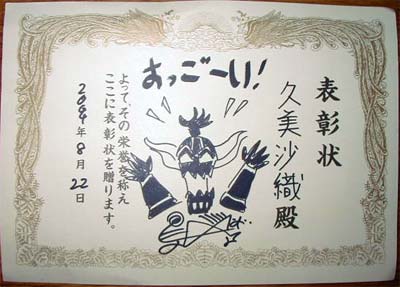 表彰状
久美沙織殿
あっごーい!
よって、その栄誉を称え
ここに表彰状を贈ります。
2004年8月22日